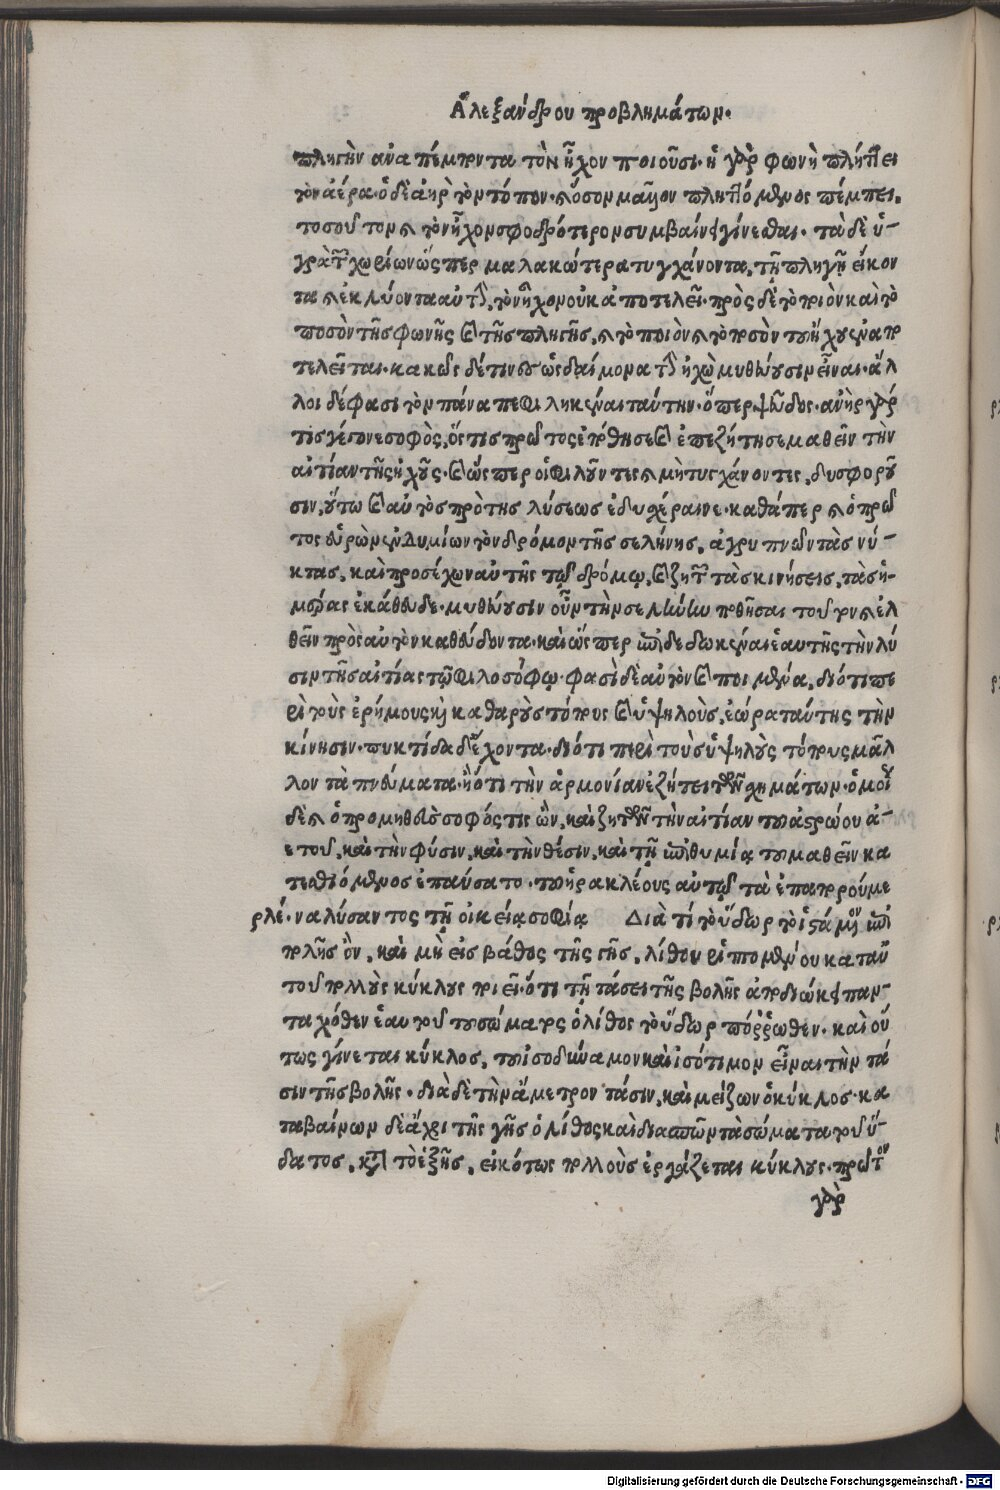 Ἀλεξάνδρου προβλημάτων.
πληγὴν ἀναπέμποντα τὸν ἦχον ποιοῦσι. ἡ γὰρ φωνὴ πλήττει
τὸν ἀέρα. ὁ δὲ ἀὴρ τὸν τόπον. καὶ ὅσον μᾶλλον πληττόμενος πέμπει.
τοσοῦτον καὶ τὸν ἦχον σφοδρότερον συμβαίνει γίνεσθαι. τὰ δὲ ὑ-
γρὰ τῶν χωρίων ὥσπερ μαλακώτερα τυγχάνοντα, τῇ πληγῇ εἴκον
τα καὶ ἐκλύοντα αὐτὴν, τὸν ἦχον οὐκ ἀποτελεῖ. πρὸς δὲ τὸ ποιὸν καὶ τὸ
ποσὸν τῆς φωνῆς καὶ τῆς πληγῆς, καὶ τὸ ποιὸν καὶ τὸ ποσὸν τοῦ ἤχους ἐναπο
τελεῖται. κακῶς δέ τινες ὡς δαίμονα τὴν ἠχὼ μυθεύουσιν εἶναι. ἄλ
λοι δέ φασι τὸν πάνα πεφιληκέναι ταύτην. ὅπερ ψεῦδος. ἀνὴρ γάρ
τις γέγονε σοφὸς, ὅστις πρῶτος ἐπόθησε καὶ ἐπεζήτησε μαθεῖν τὴν
αἰτίαν τῆς ἠχοῦς. καὶ ὥσπερ οἱ φιλοῦντες καὶ μὴ τυγχάνοντες, δυσφοροῦ
σιν, οὕτω καὶ αὐτὸς πρὸ τῆς λύσεως ἐδυσχέραινε. καθάπερ καὶ ὁ πρῶ
τος εὑρὼν ἐνδυμίων τὸν δρόμον τῆς σελήνης, ἀγρυπνῶν τὰς νύ-
κτας, καὶ προσέχων αὐτῆς τῷ δρόμῳ, καὶ ζητῶν τὰς κινήσεις, τὰς ἡ-
μέρας ἐκάθευδε. μυθεύουσιν οὖν τὴν σελήνην ποθῆσαι τοῦτον καὶ ἐλ
θεῖν πρὸς αὐτὸν καθεύδοντα. καὶ ὥσπερ ἐπιδεδωκέναι ἑαυτῆς τὴν λύ
σιν τῆς αἰτίας τῷ φιλοσόφῳ. φασὶ δὲ αὐτὸν καὶ ποιμένα, διότι πε
ρὶ τοὺς ἐρήμους καὶ καθαροὺς τόπους καὶ ὑψηλοὺς, ἑώρα ταύτης τὴν
κίνησιν. πυκτίδα δὲ ἔχοντα. διότι περὶ τοὺς ὑψηλοὺς τόπους μᾶλ
λον τὰ πνεύματα. ἢ ὅτι τὴν ἁρμονίαν ἐζήτει τῶν σχημάτων. ὁμοίως
δὲ καὶ ὁ προμηθεὺς σοφός τις ὢν, καὶ ζητῶν τὴν αἰτίαν τοῦ ἀστρώου ἀ-
ετοῦ, καὶ τὴν φύσιν, καὶ τὴν θέσιν, καὶ τῇ ἐπιθυμίᾳ τοῦ μαθεῖν κα
τεσθιόμενος ἐπαύσατο. τοῦ ἡρακλέους αὐτῷ τὰ ἐπαπορούμε
ρλέ. να λύσαντος τῇ οἰκείᾳ σοφίᾳ Διὰ τί τὸ ὕδωρ τὸ ἱστάμενον ἐπι
πολῆς ὂν, καὶ μὴ εἰς βάθος τῆς γῆς, λίθου ῥιπτομένου κατ᾽ αὐ
τοῦ πολλοὺς κύκλους ποιεῖ. ὅτι τῇ τάσει τῆς βολῆς ἀποδιώκει παν-
ταχόθεν ἑαυτοῦ τοῦ σώματος ὁ λίθος τὸ ὕδωρ πόῤῥωθεν. καὶ οὕ
τως γίνεται κύκλος, τοῦ ἰσοδύναμον καὶ ἰσότιμον εἶναι τὴν τά
σιν τῆς βολῆς. διὰ δὲ τὴν ἄμετρον τάσιν, καὶ μείζων ὁ κύκλος. κα
ταβαίνων δὲ ἄχρι τῆς γῆς ὁ λίθος καὶ διασπῶν τὰ σώματα τοῦ ὕ-
δατος, κατὰ τὸ ἑξῆς, εἰκότως πολλοὺς ἐργάζεται κύκλους. πρῶτον
γὰρ
Digitalisierung gefördert durch die Deutsche Forschungsgemeinschaft - DFG